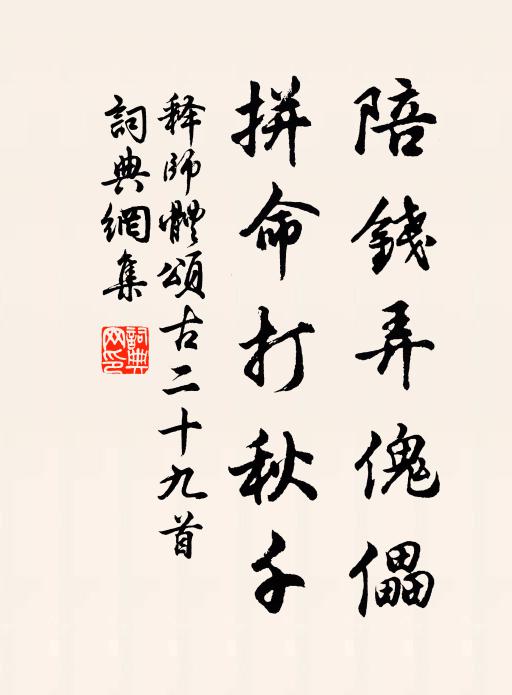 陪錢弄傀儡
拼命打秋千
释師體頌古二十九首
詞典網集
詞典网印